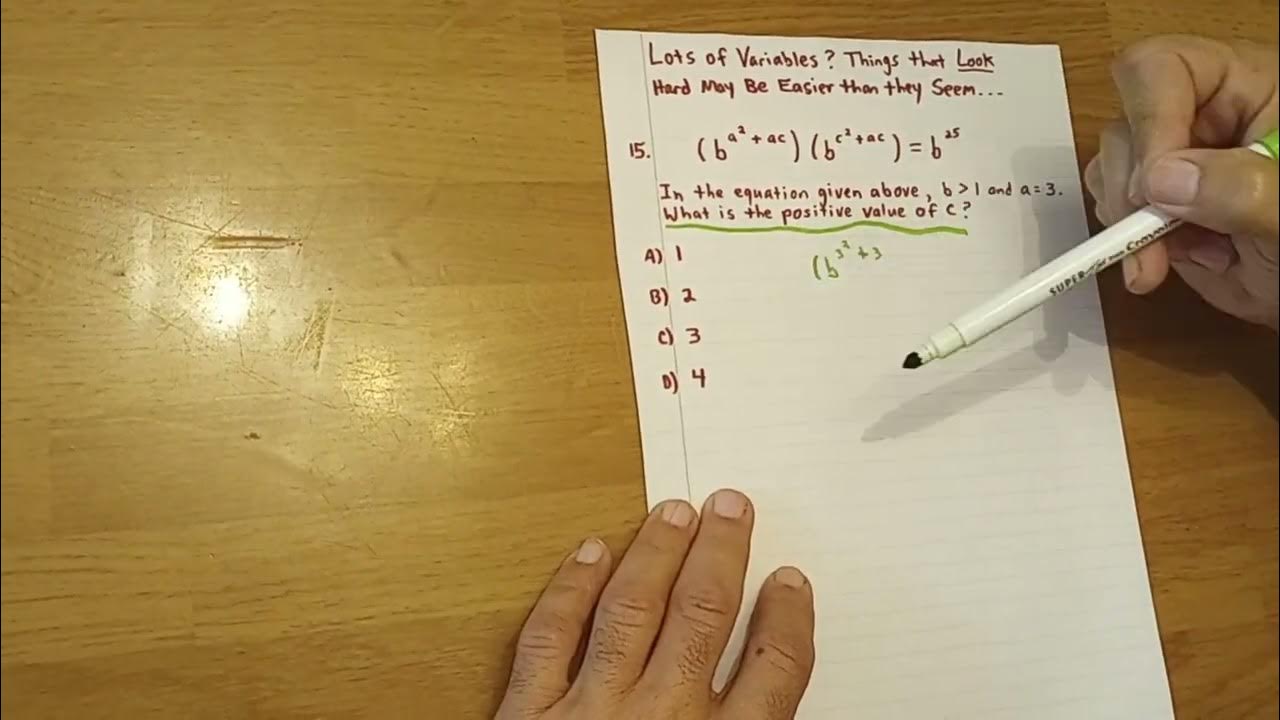 Lots of Variables? Things that Look
Hard May Be Easier than they Seem...
15. (b^{a^2 + ac}) (b^{c^2 + ac}) = b^{25}
In the equation given above, b > 1 and a = 3.
What is the positive value of c?
A) 1
(b^{3^2 + 3}
B) 2
C) 3
D) 4
SUPER